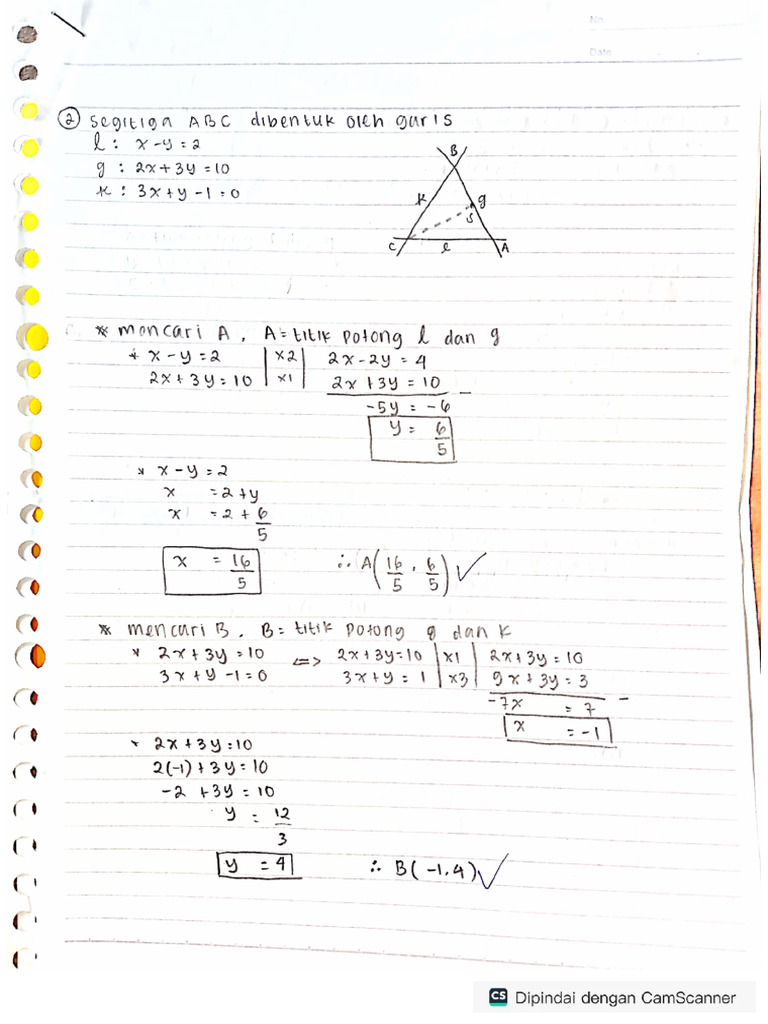 No.
Date
② Segitiga ABC dibentuk oleh garis
l : x - y = 2
g : 2x + 3y = 10
k : 3x + y - 1 = 0
B
k
g
S
C
l
A
* mencari A, A = titik potong l dan g
* x - y = 2 | x2 | 2x - 2y = 4
2x + 3y = 10 | x1 | 2x + 3y = 10 -
-5y = -6
y = 6/5
* x - y = 2
x = 2 + y
x = 2 + 6/5
x = 16/5 ∴ A(16/5, 6/5) ✓
* mencari B, B = titik potong g dan k
* 2x + 3y = 10 <=> 2x + 3y = 10 | x1 | 2x + 3y = 10
3x + y - 1 = 0 3x + y = 1 | x3 | 9x + 3y = 3 -
-7x = 7
x = -1
* 2x + 3y = 10
2(-1) + 3y = 10
-2 + 3y = 10
y = 12/3
y = 4 ∴ B(-1,4) ✓
CS Dipindai dengan CamScanner